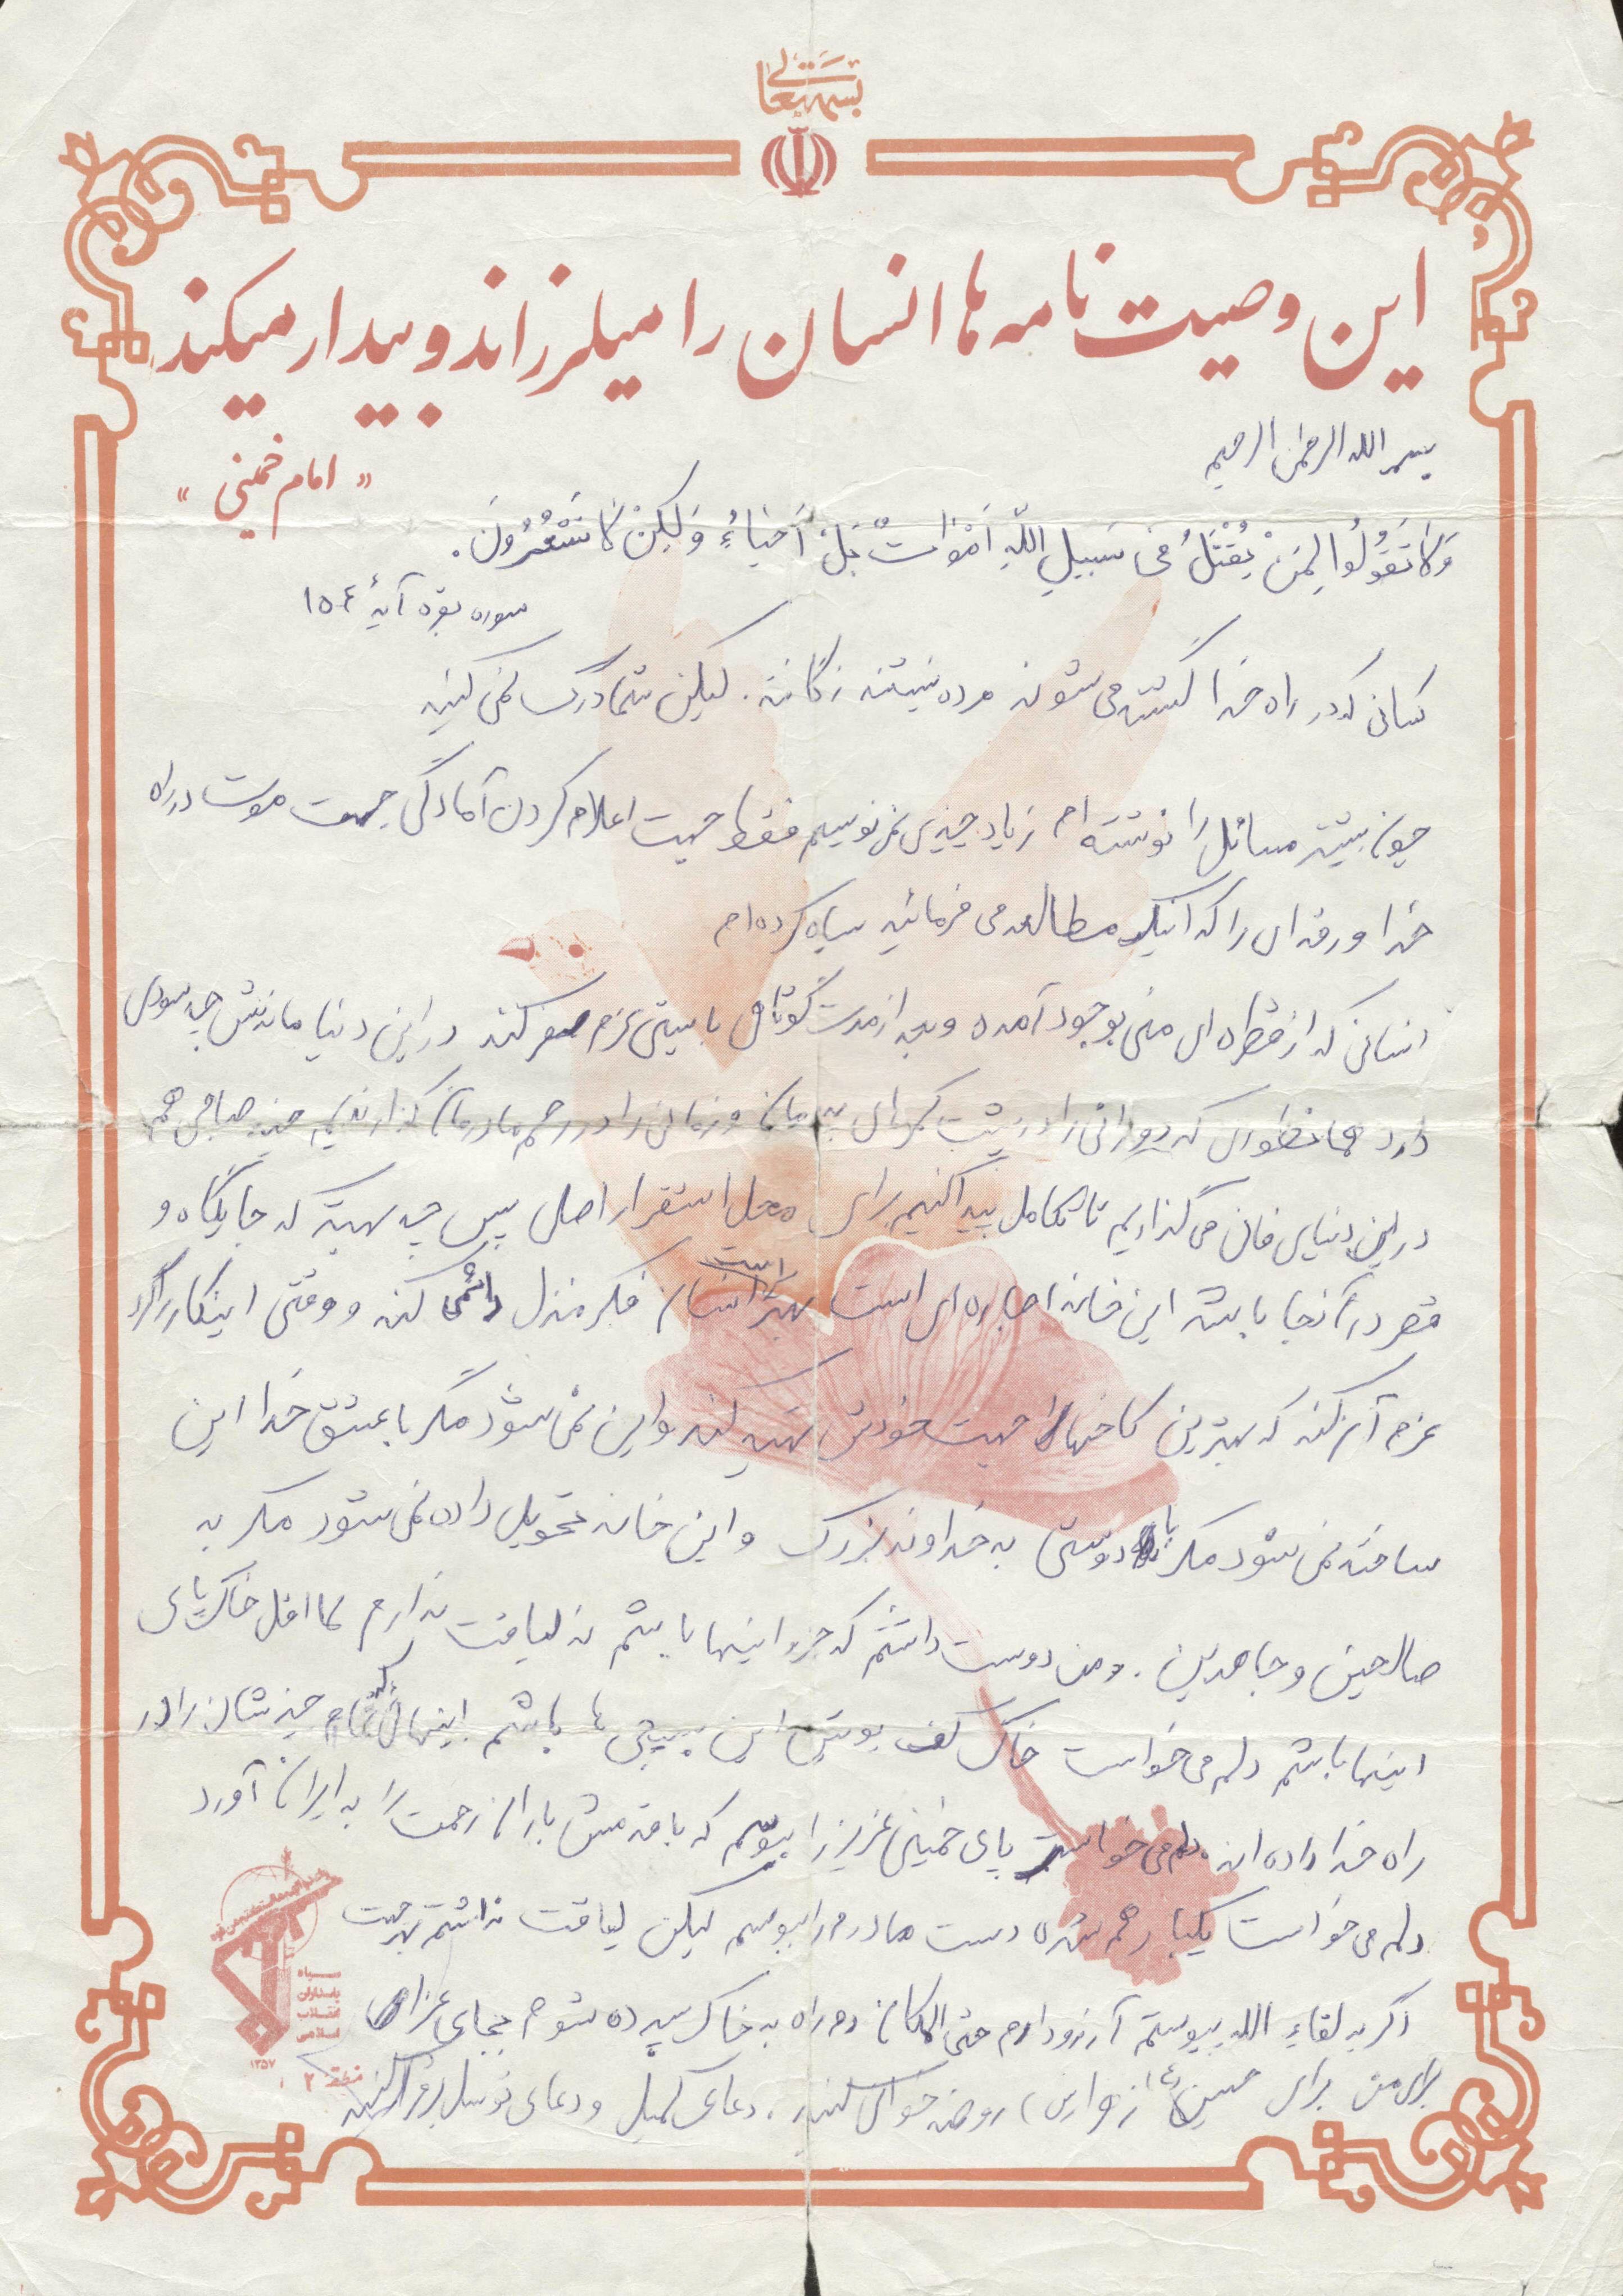 بسمه تعالی
این وصیت نامه ها انسان را میلرزاند و بیدار میکند
« امام خمینی »
بسم الله الرحمن الرحیم
وَلا تَقُولُوا لِمَنْ یُقْتَلُ فی سَبیلِ اللّهِ اَمْواتٌ بَلْ اَحْیاءٌ وَلکِنْ لا تَشْعُرُونَ.
سوره بقره آیهٔ ۱۵٤
کسانی که در راه خدا کشته می شوند مرده نیستند زنده‌اند. لیکن شما درک نمی کنید
چون بیشتر مسائل را نوشته ام زیاد چیزی نمی نویسم فقط جهت اعلام کردن آمادگی جهت موت در راه
خدا ورقه ای را که اینک مطالعه می فرمائید سیاه کرده ام
انسانی که از قطره ای منی بوجود آمده و بعد از مدت کوتاهی بایستی عزم سفر کند در این دنیا ماندنش چه سودی
دارد همانطوری که دورانی را در پشت کمرهای پدرمان و زمانی را در رحم مادرمان گذراندیم چند صباحی هم
در این دنیای فانی می گذاریم تا تکامل پیدا کنیم برای محل استقرار اصلی پس چه بهتر که جایگاه و
قصر در آنجا باشد این خانه اجاره ای است بهتر است انسان فکر منزل دائمی کند و وقتی اینکار را کرد
عزم آن کند که بهترین کاخها را جهت خودش تهیه کند و این نمی شود مگر با عشق خدا این
ساخته نمی شود مگر با دوستی به خداوند بزرگ و این خانه تحویل داده نمی شود مگر به
صالحین و مجاهدین. و من دوست داشتم که جزء اینها باشم نه لیاقت ندارم لااقل خاک پای
اینها باشم دلم می خواست خاک کف پوتین این بسیجی ها باشم اینهائی که تمام چیزشان را در
راه خدا داده اند. دلم می خواست پای خمینی عزیز را ببوسم که با قدمش باران رحمت را به ایران آورد
دلم می خواست یکبار هم شده دست مادرم را ببوسم لیکن لیاقت نداشتم بهرجهت
اگر به لقاءِ الله پیوستم آرزو دارم حتی الامکان در راه به خاک سپرده شوم بجای عزای
برای من برای حسین (ع) روضه خوانی کنید، دعای کمیل و دعای توسل برقرار کنید
سپاه
پاسداران
انقلاب
اسلامی
۱۳۵۷
منطقه ۲